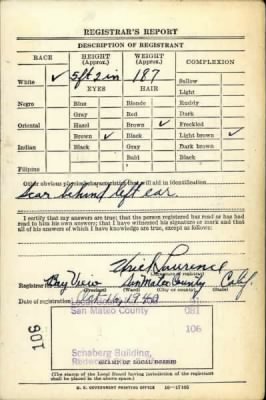 REGISTRAR'S REPORT
DESCRIPTION OF REGISTRANT
RACE HEIGHT (Approx.) WEIGHT (Approx.) COMPLEXION
White ✓ 5 ft 2 in 187 Sallow
Light
EYES HAIR
Negro Blue Blonde Ruddy
Gray Red Dark
Oriental Hazel Brown ✓ Freckled
Brown ✓ Black Light brown ✓
Indian Black Gray Dark brown
Bald Black
Filipino
Other obvious physical characteristics that will aid in identification
Scar behind left ear.
I certify that my answers are true; that the person registered has read or has had
read to him his own answers; that I have witnessed his signature or mark and that
all of his answers of which I have knowledge are true, except as follows:
Lawrence
Registrar for Bay View San Mateo County Calif
(Precinct) (Ward) (City or county) (State)
Date of registration Oct 16, 1940
San Mateo County 081
106
106
Schaberg Building,
STAMP OF LOCAL BOARD
(The stamp of the Local Board having jurisdiction of the registrant
shall be placed in the above space.)
U. S. GOVERNMENT PRINTING OFFICE 16—17105